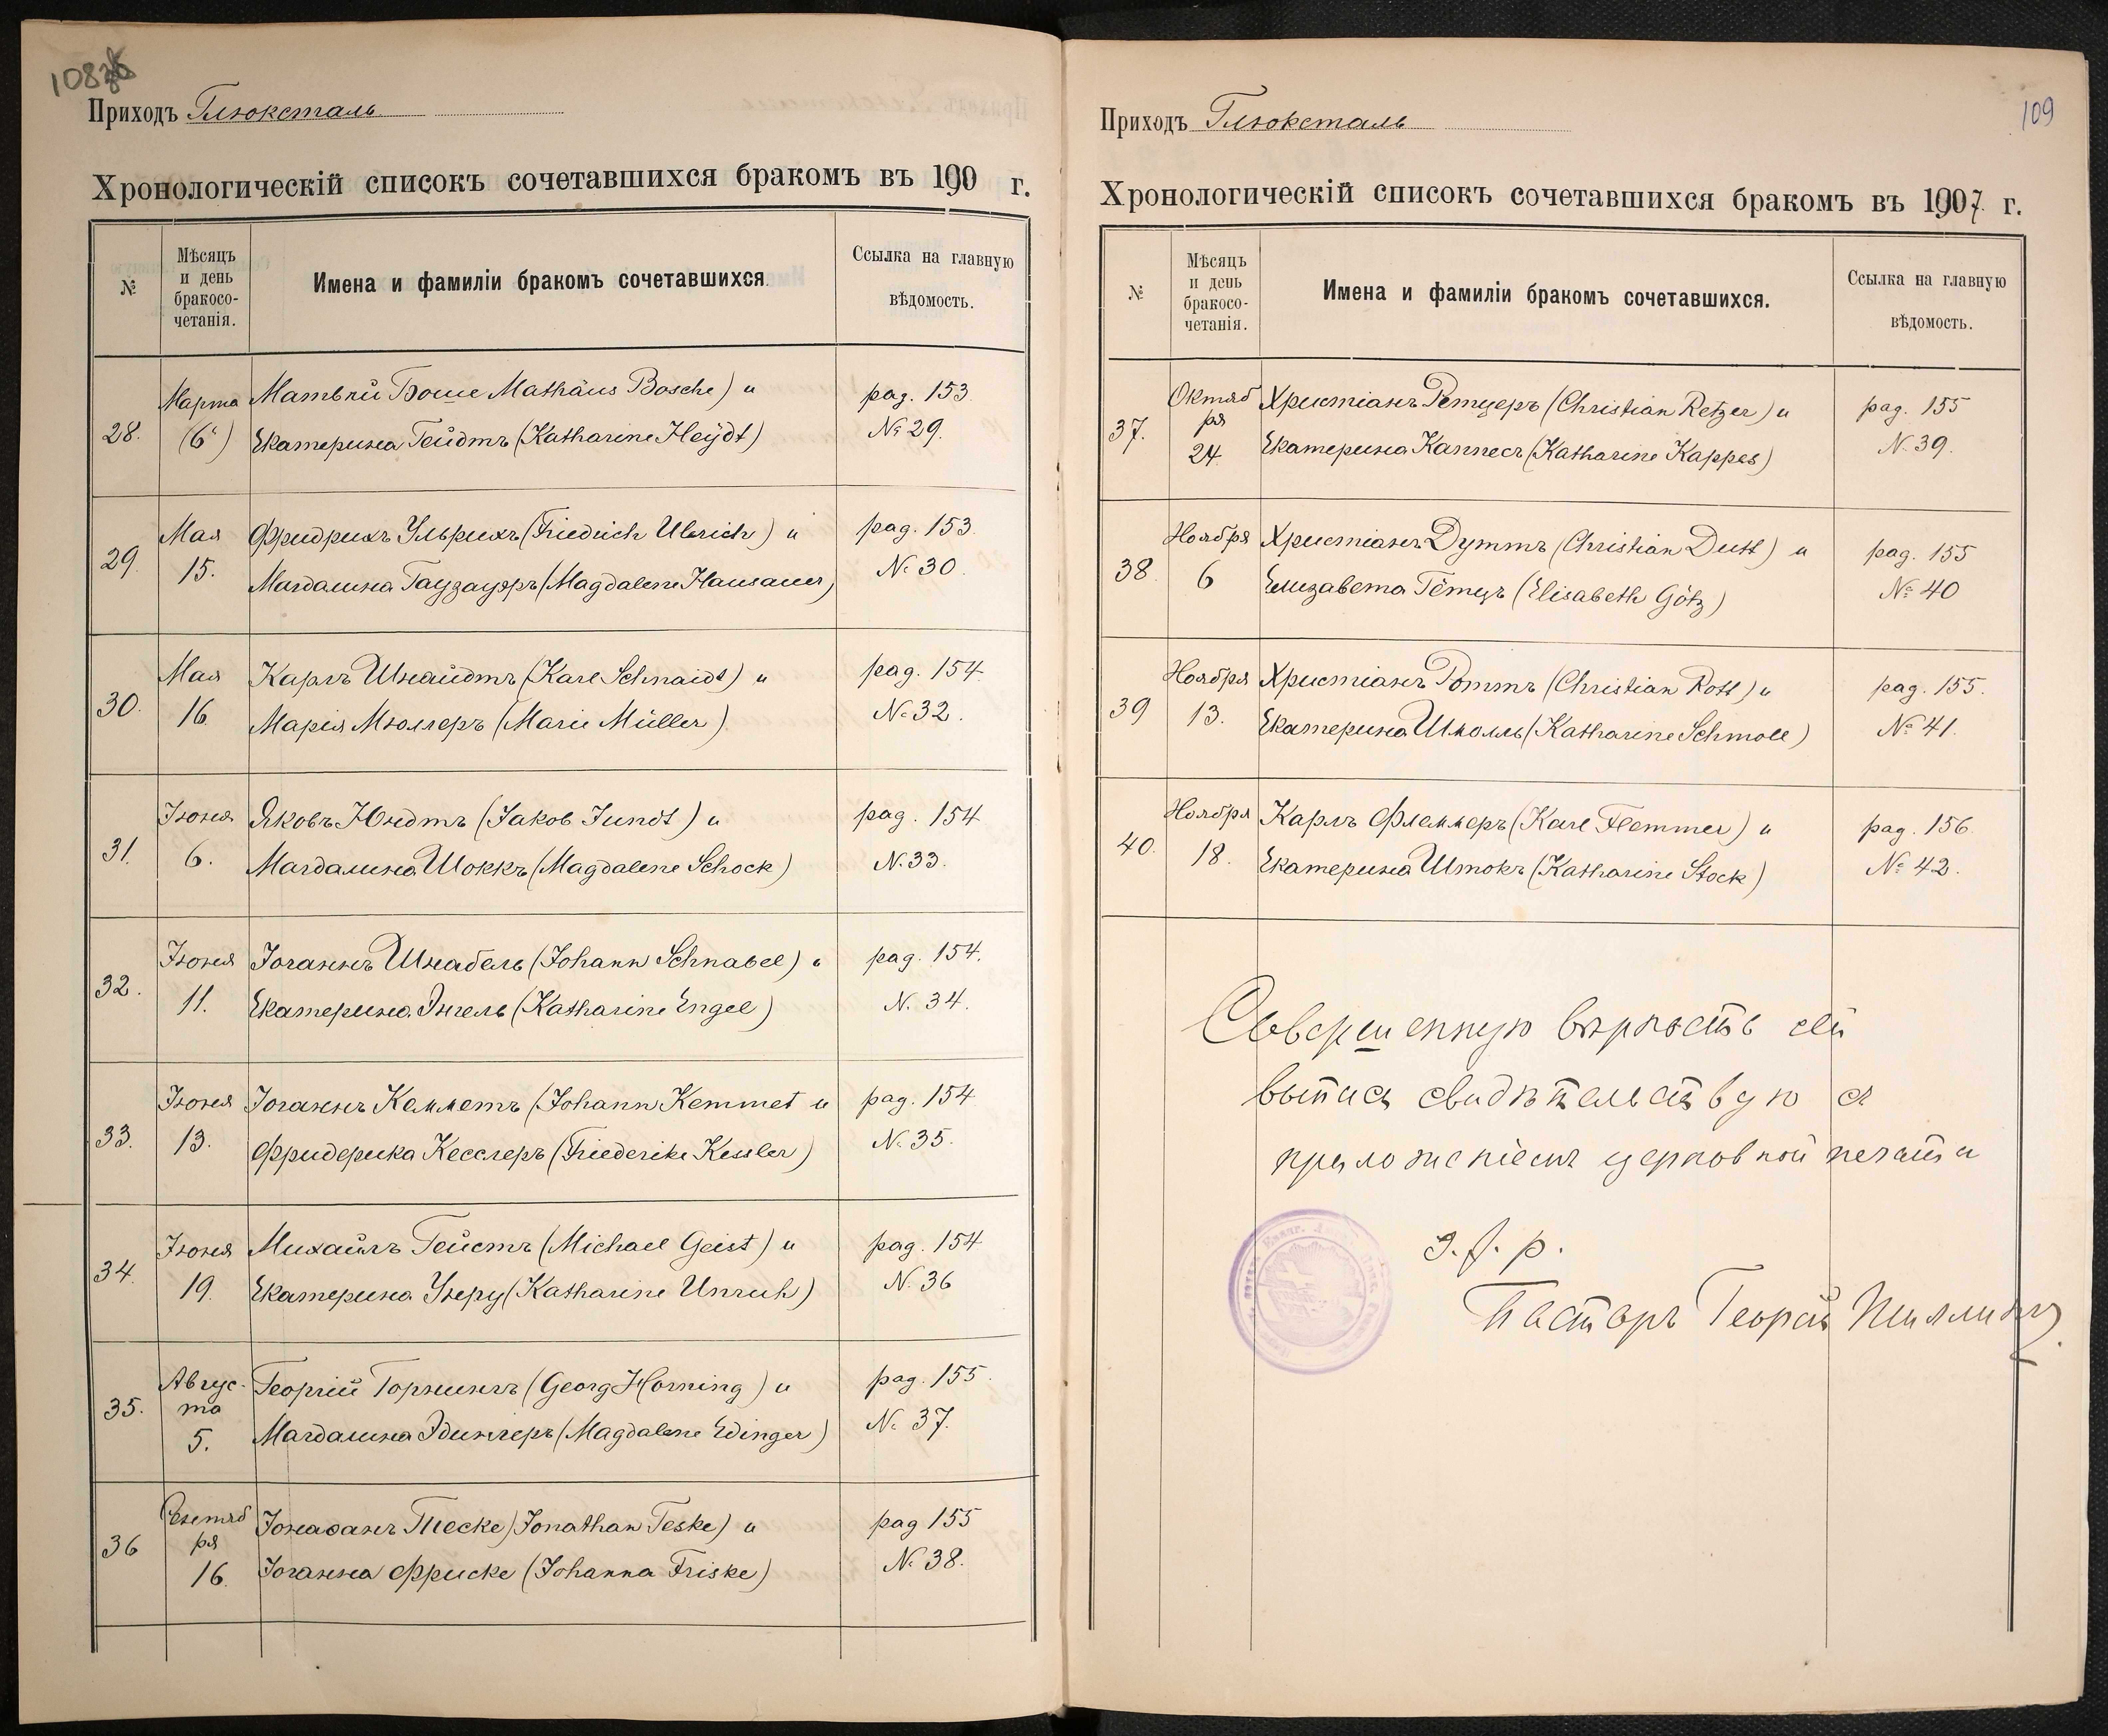 108
Приходъ Глюксталь
Хронологическій списокъ сочетавшихся бракомъ въ 190 г.
№
Мѣсяцъ
и день
бракосо-
четанія.
Имена и фамиліи бракомъ сочетавшихся
Ссылка на главную
вѣдомость.
28.
Марта
(6)
Матвѣй Боше Mathäus Bosche) и
Екатерина Гейдтъ (Katharine Heÿdt)
pag. 153
№ 29.
29.
Мая
15.
Фридрихъ Ульрихъ (Friedrich Ulrich) и
Магдалина Гаузауэръ (Magdalene Hausauer)
pag. 153
№ 30.
30.
Мая
16.
Карлъ Шнайдтъ (Karl Schnaidt) и
Марія Мюллеръ (Marie Müller)
pag. 154
№ 32.
31.
Іюня
6.
Яковъ Юндтъ (Jakob Jundt) и
Магдалина Шоккъ (Magdalene Schock)
pag. 154
N. 33.
32.
Іюня
11.
Іоганнъ Шнабель (Johann Schnabel) и
Екатерина Энгель (Katharine Engel)
pag. 154.
N. 34.
33.
Іюня
13.
Іоганнъ Кемметъ (Johann Kemmet и
Фридерика Кесслеръ (Friederike Kessler)
pag. 154
N. 35.
34.
Іюня
19.
Михаилъ Гейстъ (Michael Geist) и
Екатерина Унру (Katharine Unruh)
pag. 154
N. 36
35.
Авгус-
та
5.
Георгій Горнингъ (Georg Horning) и
Магдалина Эдингеръ (Magdalene Edinger)
pag. 155.
№ 37.
36
Сентяб
ря
16.
Іонаѳанъ Теске) Jonathan Teske) и
Іоганна Фриске (Johanna Friske)
pag 155
№ 38.
109
Приходъ Глюксталь
Хронологическій списокъ сочетавшихся бракомъ въ 1907 г.
№
Мѣсяцъ
и день
бракосо-
четанія.
Имена и фамиліи бракомъ сочетавшихся.
Ссылка на главную
вѣдомость.
37.
Октяб
ря
24.
Христіанъ Ретцеръ (Christian Retzer) и
Екатерина Каппесъ (Katharine Kappes)
pag. 155
N. 39.
38.
Ноября
6
Христіанъ Дуттъ (Christian Dutt) и
Елизавета Гётцъ (Elisabeth Götz)
pag. 155
№ 40
39
Ноября
13.
Христіанъ Роттъ (Christian Rott) и
Екатерина Шмолль (Katharine Schmoll)
pag. 155.
№ 41.
40.
Ноября
18.
Карлъ Флеммеръ (Karl Flemmer) и
Екатерина Штокъ (Katharine Stock)
pag. 156
№ 42.
Совершенную вѣрность сей
выписи свидѣтельствую съ
приложеніемъ церковной печати
Пасторъ Георгій